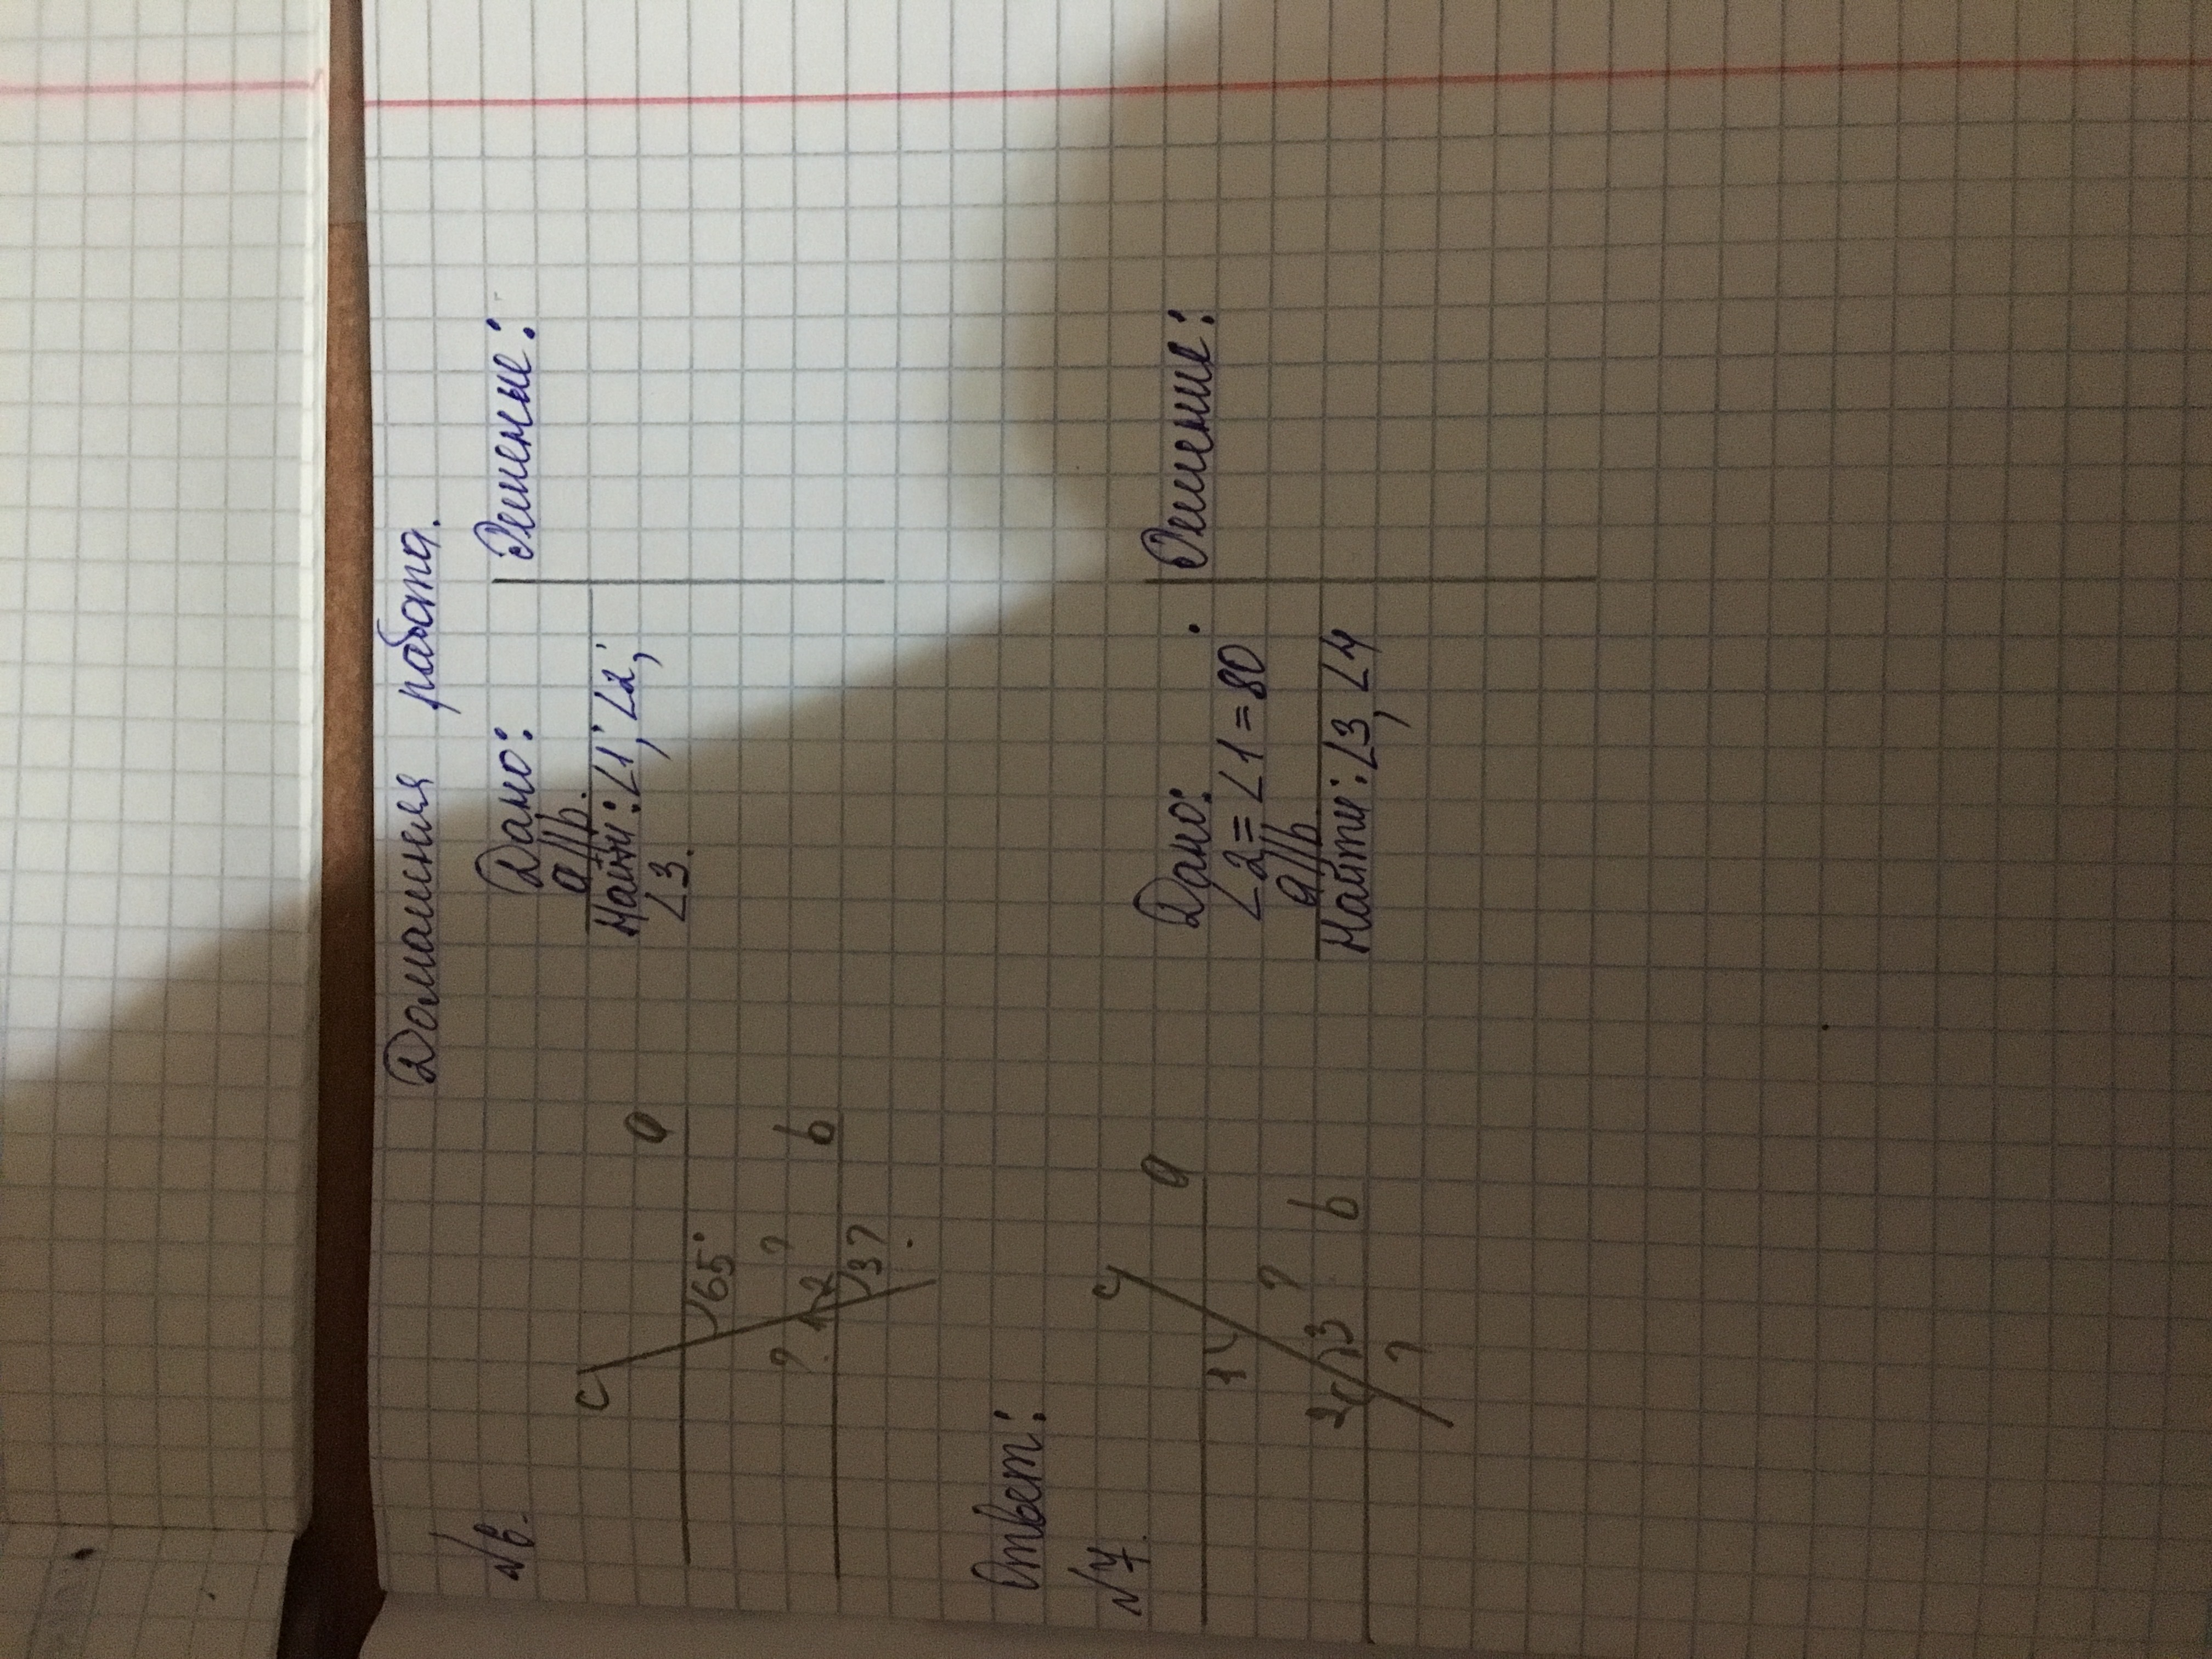 Домашняя работа.
№6.
Дано:
Решение:
a||b.
Найти: ∠1, ∠2,
∠3.
c
a
65°
? ?
1 2
b
3?
Ответ:
№7.
Дано:
Решение:
∠2 = ∠1 = 80
a||b
Найти: ∠3, ∠4
c
a
1
?
2 3
b
?